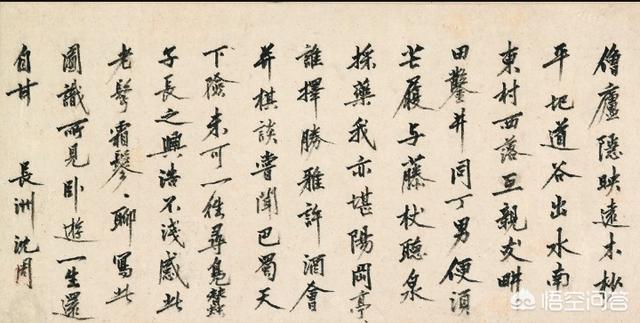 僧廬隱映遠木杪
平地道谷出水南
東村西落互親友畊
田鑿井同丁男便須
芒屨与藤杖聽泉
採藥我亦堪陽岡亭
誰擇勝雅許酒會
并棋談嘗聞巴蜀天
下險未可一往尋凫蠶
子長之興浩不淺感此
老髩霜鬖鬖聊寫此
圖識所見卧遊一生還
自甘 長洲沈周
悟空问答